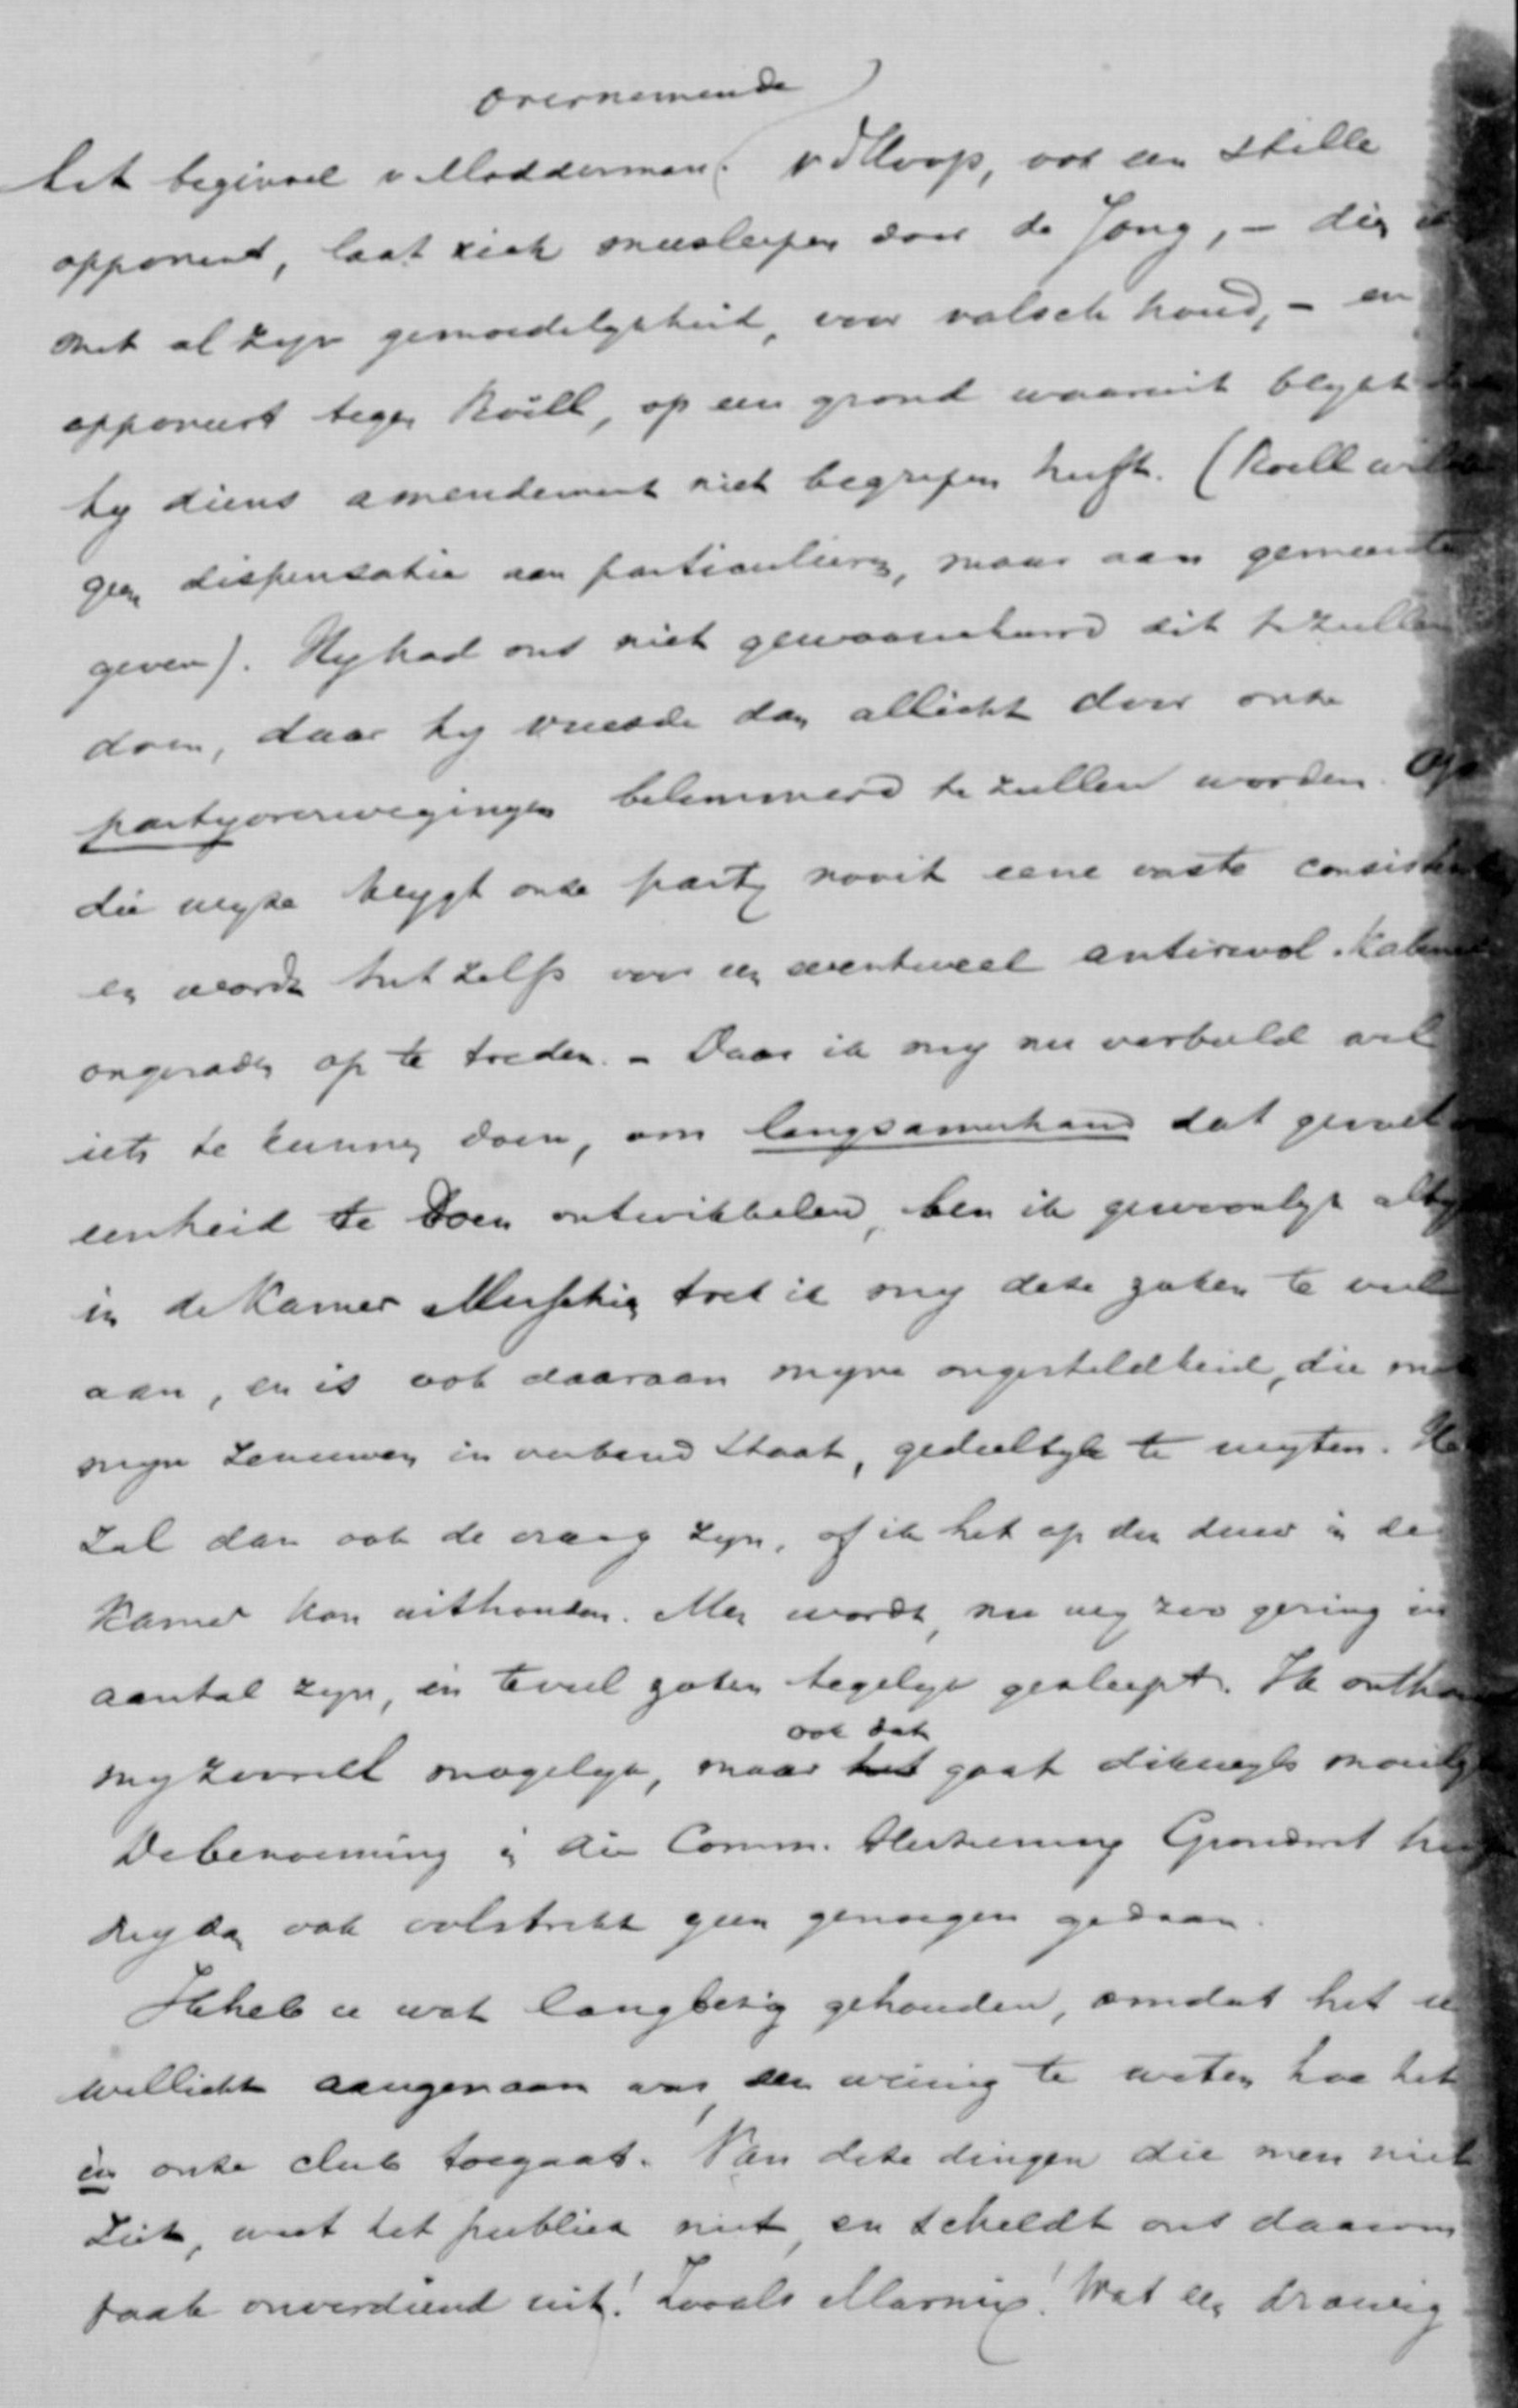 overnemende
het beginsel v Modderman. vdHoop, ook een stille
opponent, laat zich meeslepen door de Jong, – die ik
met al zyn gemoedelykheid, voor valsch houd, – en
opponeert tegen Röell, op een grond waaruit blykt dat
hy diens amendement niet begrepen heeft. (Roell wilde
geen dispensatie aan particulieren, maar aan gemeente
geven). Hy had ons niet gewaarschuwd dit te zullen
doen, daar hy vreesde dan allicht door onze
partyoverwegingen belemmerd te zullen worden. Op
die wyze krygt onze party nooit eene vaste consistentie
en wordt het zelfs voor een eventueel antirevol. Kabinet
ongeraden op te treden. – Daar ik my nu verbeeld wel
iets te kunnen doen, om langzamerhand dat gevoel v
eenheid te doen ontwikkelen, ben ik gewoonlyk altyd
in de Kamer. Misschien trek ik my deze zaken te veel
aan, en is ook daaraan myne ongesteldheid, die met
myn zenuwen in verband staat, gedeeltelyk te wyten. Het
zal dan ook de vraag zyn, of ik het op den duur in de
Kamer kan uithouden. Men wordt, nu wy zoo gering in
aantal zyn, in te veel zaken tegelyk gesleept. Ik onthoud
my zooveel mogelyk, maar het ook dat gaat dikwyls moeilyk
De benoeming in die Comm. Herziening Grondwet heeft
my dan ook volstrekt geen genoegen gedaan.
Ik heb u wat lang bezig gehouden, omdat het u
wellicht aangenaam was, een weinig te weten hoe het
in onze club toegaat. Van deze dingen die men niet
ziet, weet het publiek niet, en scheldt ons daarom
vaak onverdiend uit! Zooals Marnix! Wat een droevig